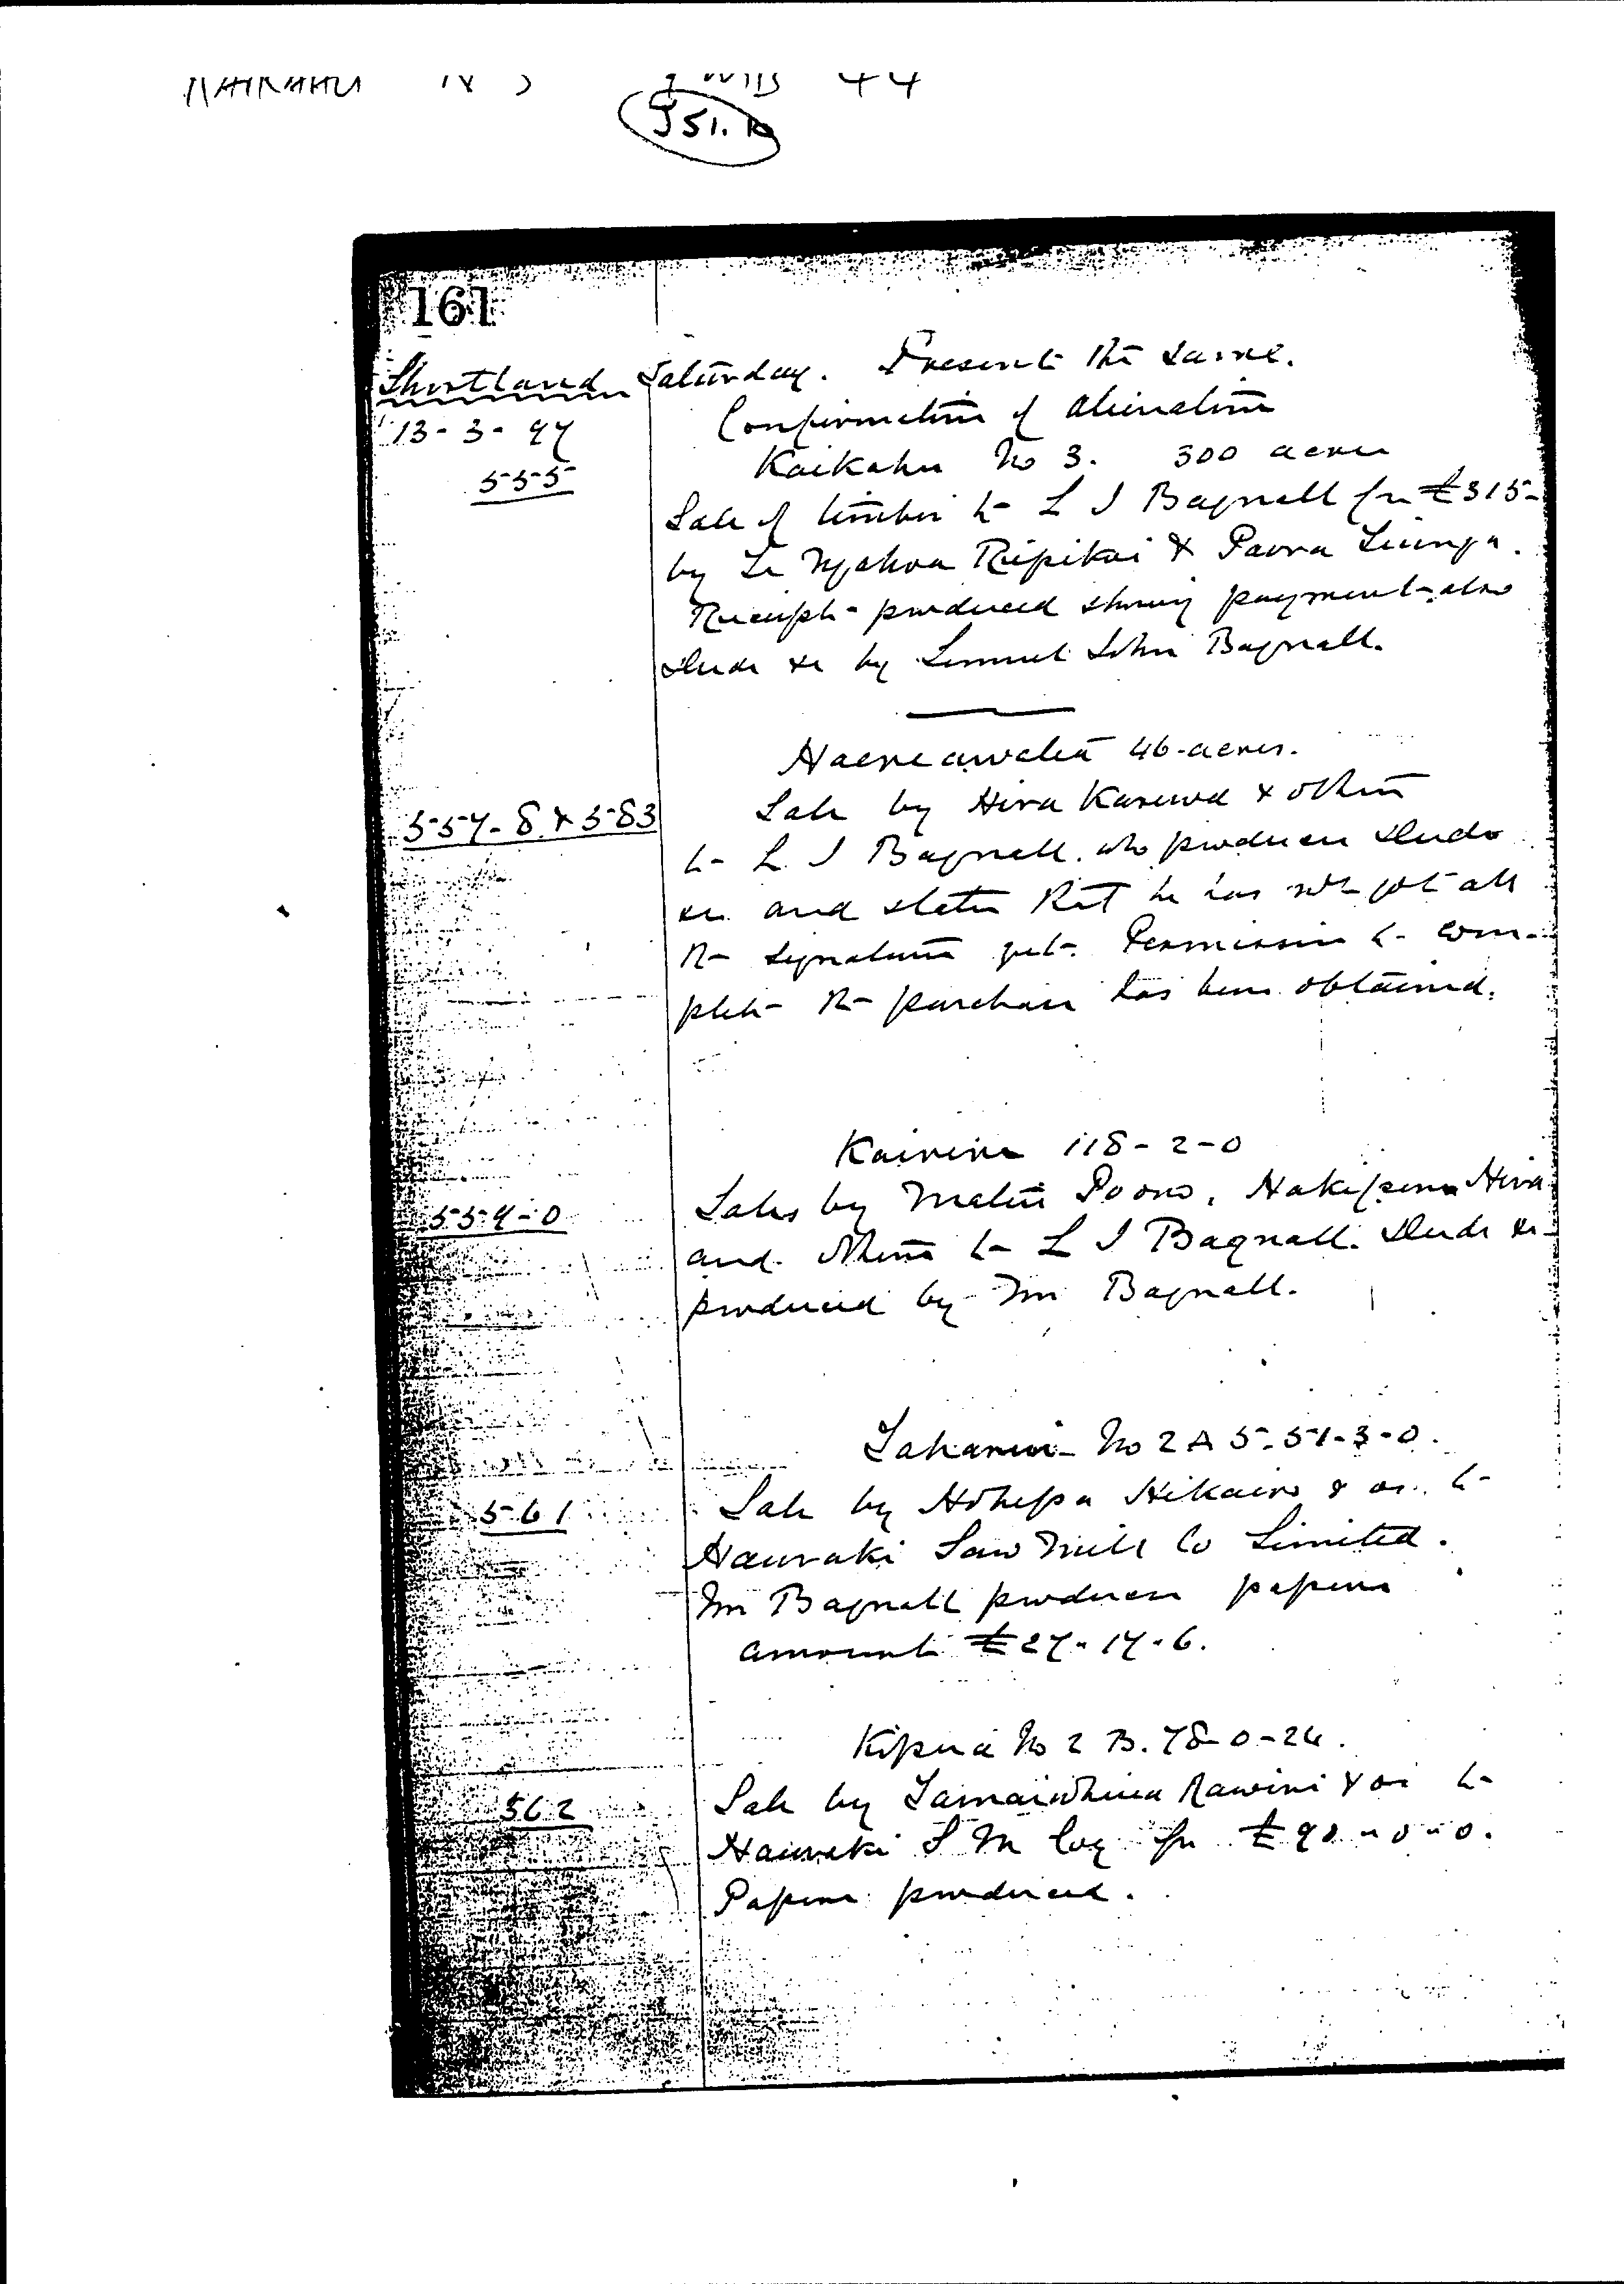 44
J51.10
161
Shortland Saturday. Present the same.
13-3-97 Confirmation of alienation
Kaikahu No 3. 300 acres
555
Sale of timber to L J Bagnall for £315-
by Te Ngahoa Ripikoi & Paora Tiunga.
Receipt produced showing payment also
deeds &c by Lemuel John Bagnall.
Haereawatea 46 acres.
557-8 & 583 Sale by Hera Karewa & others
to L J Bagnall who produces deeds
&c and states that he has not got all
the signatures yet. Permission to com-
plete the purchase has been obtained.
Kairere 118-2-0
559-0 Sales by Matiu Poono, Hakipene Hira
and others to L J Bagnall. Deeds &c
produced by Mr Bagnall.
No 2A 5. 51-3-0.
561 Sale by Hohepa Hikairo & or. to
Hauraki Saw Mill Co Limited.
Mr Bagnall produces papers
amount £27-17-6.
Kipua No 2 B. 78-0-24.
562 Sale by Rawiri & or to
Hauraki S M Coy for £90-0-0.
Papers produced.